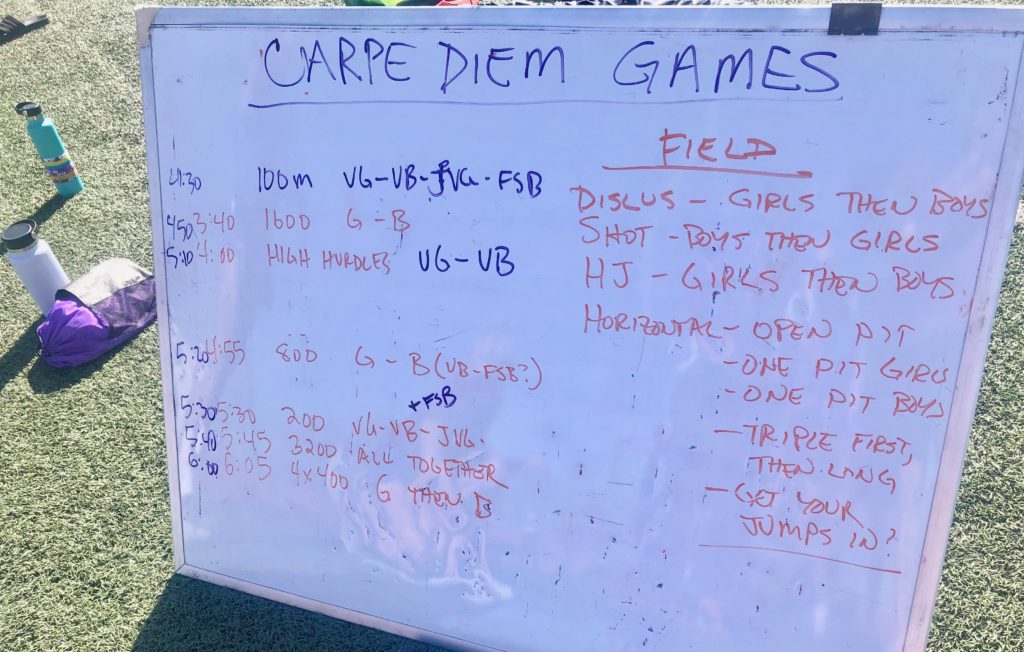 CARPE DIEM GAMES
4:30 100m VG-VB-JVG-FSB
4:50 3:40 1600 G-B
5:10 4:00 HIGH HURDLES VG-VB
5:20 4:55 800 G-B (VB-FSB?)
+FSB
5:30 5:30 200 VG-VB-JVG.
5:40 5:45 3200 ALL TOGETHER
6:00 6:05 4x400 G THEN B
FIELD
DISCUS - GIRLS THEN BOYS
SHOT - BOYS THEN GIRLS
HJ - GIRLS THEN BOYS
HORIZONTAL - OPEN PIT
- ONE PIT GIRLS
- ONE PIT BOYS
- TRIPLE FIRST,
THEN LONG
- GET YOUR
JUMPS IN?